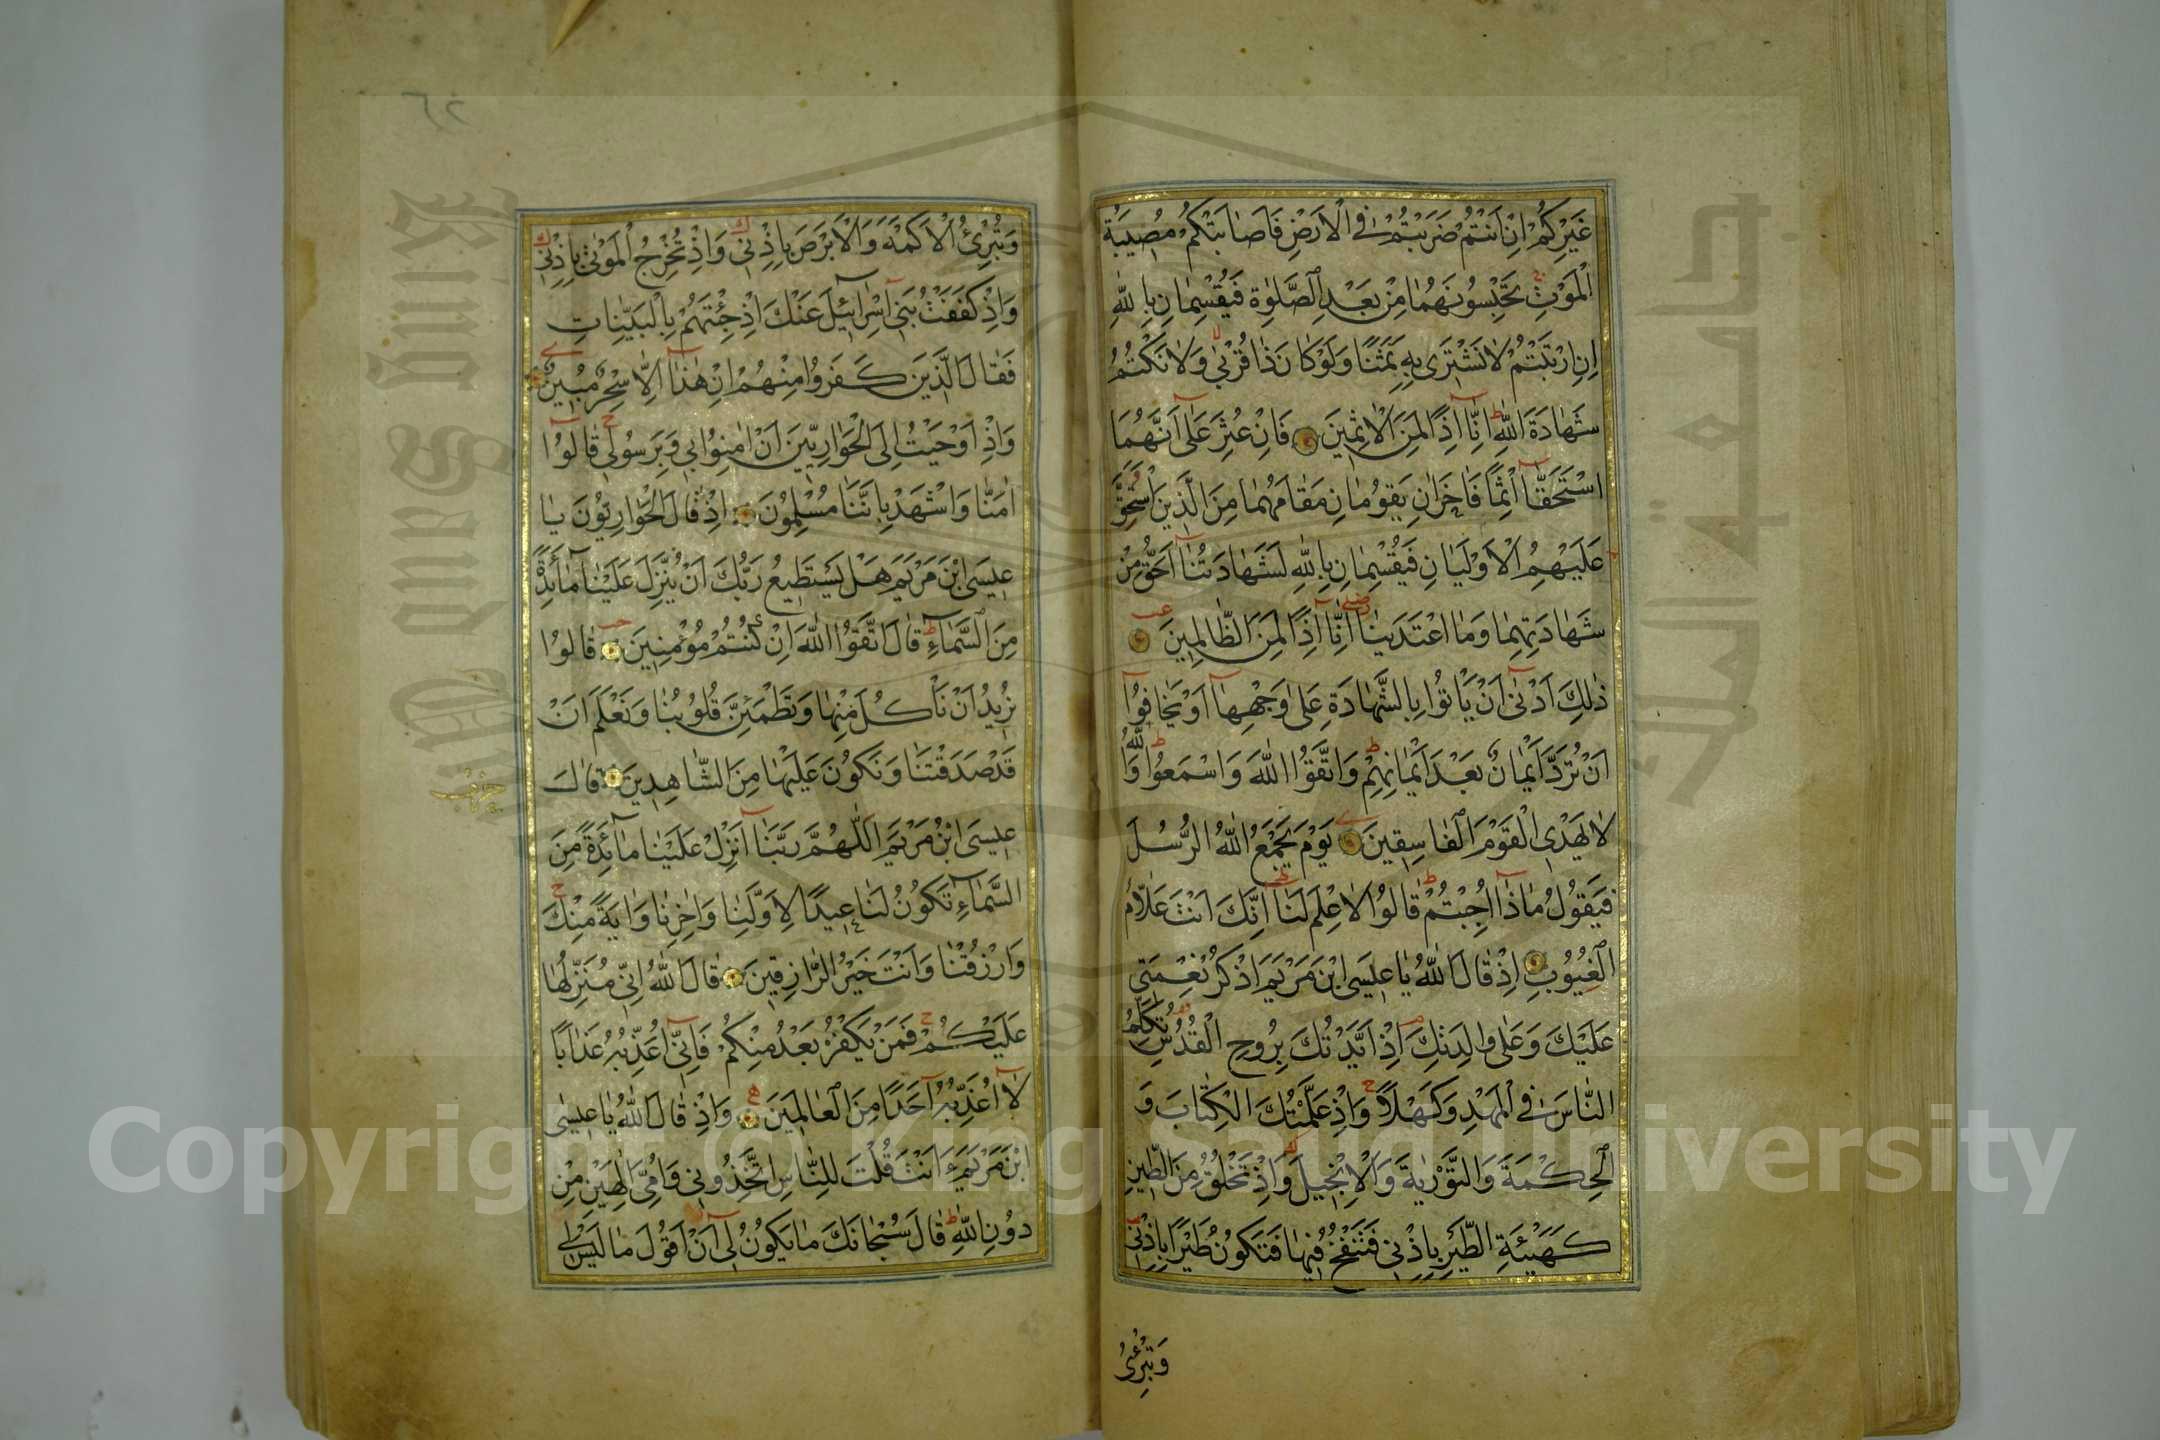 غَيْرِكُمْ اِنْ اَنْتُمْ ضَرَبْتُمْ فِي الْاَرْضِ فَاَصَابَتْكُمْ مُصِيبَةُ
الْمَوْتِ تَحْبِسُونَهُمَا مِنْ بَعْدِ الصَّلٰوةِ فَيُقْسِمَانِ بِاللّٰهِ
اِنِ ارْتَبْتُمْ لَا نَشْتَرِي بِهِ ثَمَنًا وَلَوْ كَانَ ذَا قُرْبٰى وَلَا نَكْتُمُ
شَهَادَةَ اللّٰهِ اِنَّا اِذًا لَمِنَ الْاٰثِمِينَ فَاِنْ عُثِرَ عَلٰى اَنَّهُمَا
اسْتَحَقَّا اِثْمًا فَاٰخَرَانِ يَقُومَانِ مَقَامَهُمَا مِنَ الَّذِينَ اسْتَحَقَّ
عَلَيْهِمُ الْاَوْلَيَانِ فَيُقْسِمَانِ بِاللّٰهِ لَشَهَادَتُنَا اَحَقُّ مِنْ
شَهَادَتِهِمَا وَمَا اعْتَدَيْنَا اِنَّا اِذًا لَمِنَ الظَّالِمِينَ
ذٰلِكَ اَدْنٰى اَنْ يَأْتُوا بِالشَّهَادَةِ عَلٰى وَجْهِهَا اَوْ يَخَافُوا
اَنْ تُرَدَّ اَيْمَانٌ بَعْدَ اَيْمَانِهِمْ وَاتَّقُوا اللّٰهَ وَاسْمَعُوا وَاللّٰهُ
لَا يَهْدِي الْقَوْمَ الْفَاسِقِينَ يَوْمَ يَجْمَعُ اللّٰهُ الرُّسُلَ
فَيَقُولُ مَاذَا اُجِبْتُمْ قَالُوا لَا عِلْمَ لَنَا اِنَّكَ اَنْتَ عَلَّامُ
الْغُيُوبِ اِذْ قَالَ اللّٰهُ يَا عِيسَى ابْنَ مَرْيَمَ اذْكُرْ نِعْمَتِي
عَلَيْكَ وَعَلٰى وَالِدَتِكَ اِذْ اَيَّدْتُكَ بِرُوحِ الْقُدُسِ تُكَلِّمُ
النَّاسَ فِي الْمَهْدِ وَكَهْلًا وَاِذْ عَلَّمْتُكَ الْكِتَابَ وَ
الْحِكْمَةَ وَالتَّوْرٰيةَ وَالْاِنْجِيلَ وَاِذْ تَخْلُقُ مِنَ الطِّينِ
كَهَيْئَةِ الطَّيْرِ بِاِذْنِي فَتَنْفُخُ فِيهَا فَتَكُونُ طَيْرًا بِاِذْنِي
وَتُبْرِئُ
وَتُبْرِئُ الْاَكْمَهَ وَالْاَبْرَصَ بِاِذْنِي وَاِذْ تُخْرِجُ الْمَوْتٰى بِاِذْنِي
وَاِذْ كَفَفْتُ بَنِي اِسْرَائِيلَ عَنْكَ اِذْ جِئْتَهُمْ بِالْبَيِّنَاتِ
فَقَالَ الَّذِينَ كَفَرُوا مِنْهُمْ اِنْ هٰذَا اِلَّا سِحْرٌ مُبِينٌ
وَاِذْ اَوْحَيْتُ اِلَى الْحَوَارِيِّينَ اَنْ اٰمِنُوا بِي وَبِرَسُولِي قَالُوا
اٰمَنَّا وَاشْهَدْ بِاَنَّنَا مُسْلِمُونَ اِذْ قَالَ الْحَوَارِيُّونَ يَا
عِيسَى ابْنَ مَرْيَمَ هَلْ يَسْتَطِيعُ رَبُّكَ اَنْ يُنَزِّلَ عَلَيْنَا مَائِدَةً
مِنَ السَّمَاءِ قَالَ اتَّقُوا اللّٰهَ اِنْ كُنْتُمْ مُؤْمِنِينَ قَالُوا
نُرِيدُ اَنْ نَأْكُلَ مِنْهَا وَتَطْمَئِنَّ قُلُوبُنَا وَنَعْلَمَ اَنْ
قَدْ صَدَقْتَنَا وَنَكُونَ عَلَيْهَا مِنَ الشَّاهِدِينَ قَالَ
حزب
عِيسَى ابْنُ مَرْيَمَ اللّٰهُمَّ رَبَّنَا اَنْزِلْ عَلَيْنَا مَائِدَةً مِنَ
السَّمَاءِ تَكُونُ لَنَا عِيدًا لِاَوَّلِنَا وَاٰخِرِنَا وَاٰيَةً مِنْكَ
وَارْزُقْنَا وَاَنْتَ خَيْرُ الرَّازِقِينَ قَالَ اللّٰهُ اِنِّي مُنَزِّلُهَا
عَلَيْكُمْ فَمَنْ يَكْفُرْ بَعْدُ مِنْكُمْ فَاِنِّي اُعَذِّبُهُ عَذَابًا
لَا اُعَذِّبُهُ اَحَدًا مِنَ الْعَالَمِينَ وَاِذْ قَالَ اللّٰهُ يَا عِيسَى
ابْنَ مَرْيَمَ ءَاَنْتَ قُلْتَ لِلنَّاسِ اتَّخِذُونِي وَاُمِّيَ اِلٰهَيْنِ مِنْ
دُونِ اللّٰهِ قَالَ سُبْحَانَكَ مَا يَكُونُ لِي اَنْ اَقُولَ مَا لَيْسَ لِي
King Saud University
Copyright © King Saud University